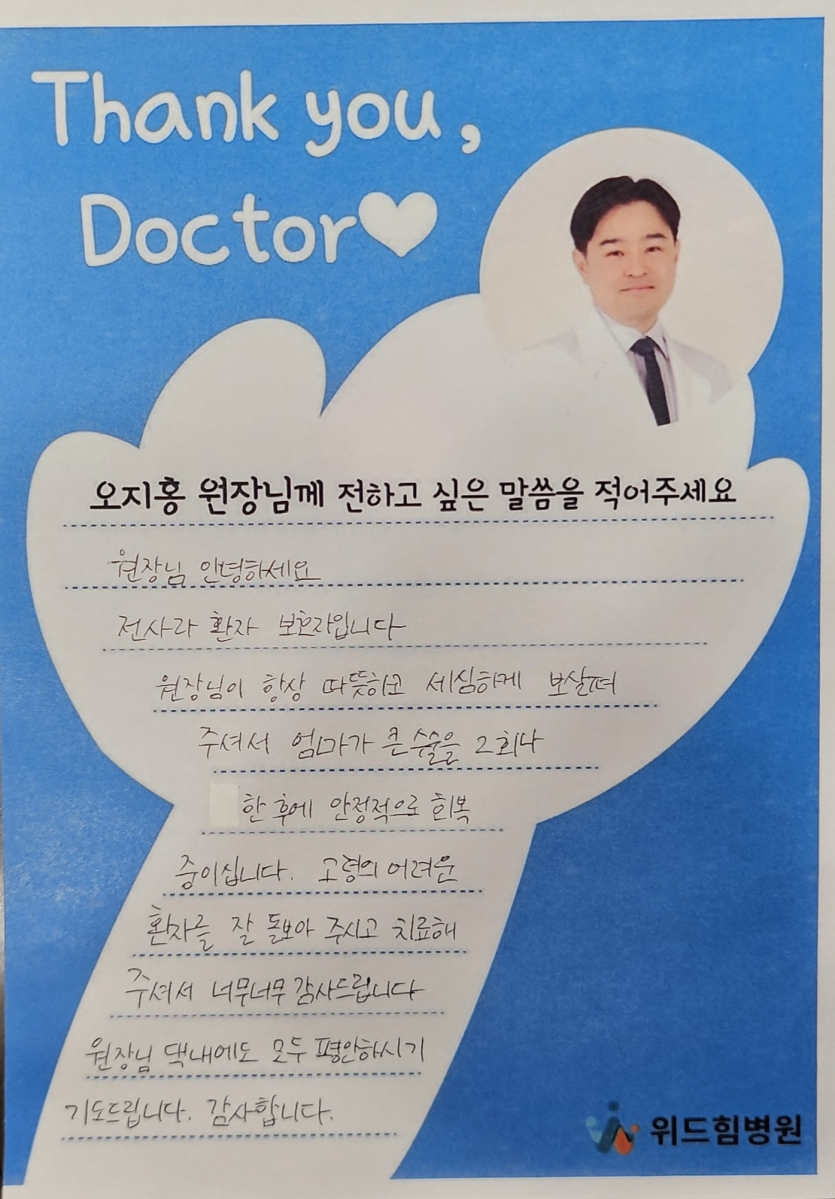 Thank you,
Doctor♥
오지홍 원장님께 전하고 싶은 말씀을 적어주세요
원장님 안녕하세요
전사라 환자 보호자입니다
원장님이 항상 따뜻하고 세심하게 보살펴
주셔서 엄마가 큰 수술을 2회나
한 후에 안정적으로 회복
중이십니다. 고령의 어려운
환자를 잘 돌보아 주시고 치료해
주셔서 너무너무 감사드립니다
원장님 댁내에도 모두 평안하시기
기도드립니다. 감사합니다.
위드힘병원